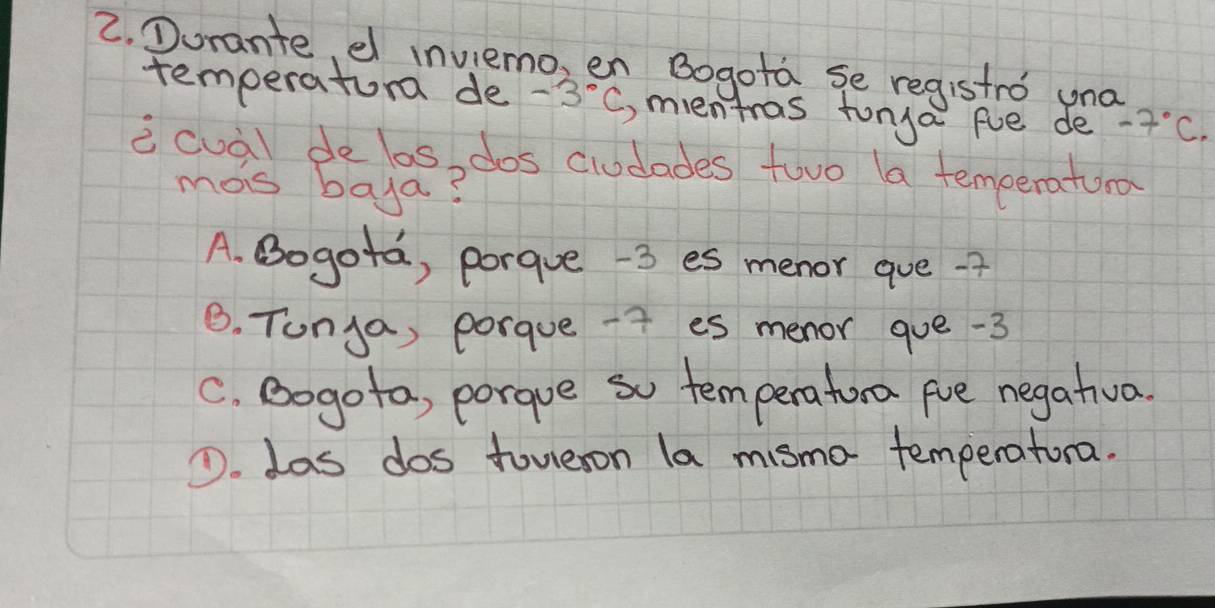 2. Durante el invierno, en Bogotá se registró una
temperatura de -3°C, mientras tunja fue de -7°C.
¿cuál de las dos ciudades tuvo la temperatura
más baja?
A. Bogotá, porque -3 es menor que -7
B. Tunja, porque -7 es menor que -3
C. Bogota, porque su temperatura fue negativa.
D. Las dos tuvieron la misma temperatura.